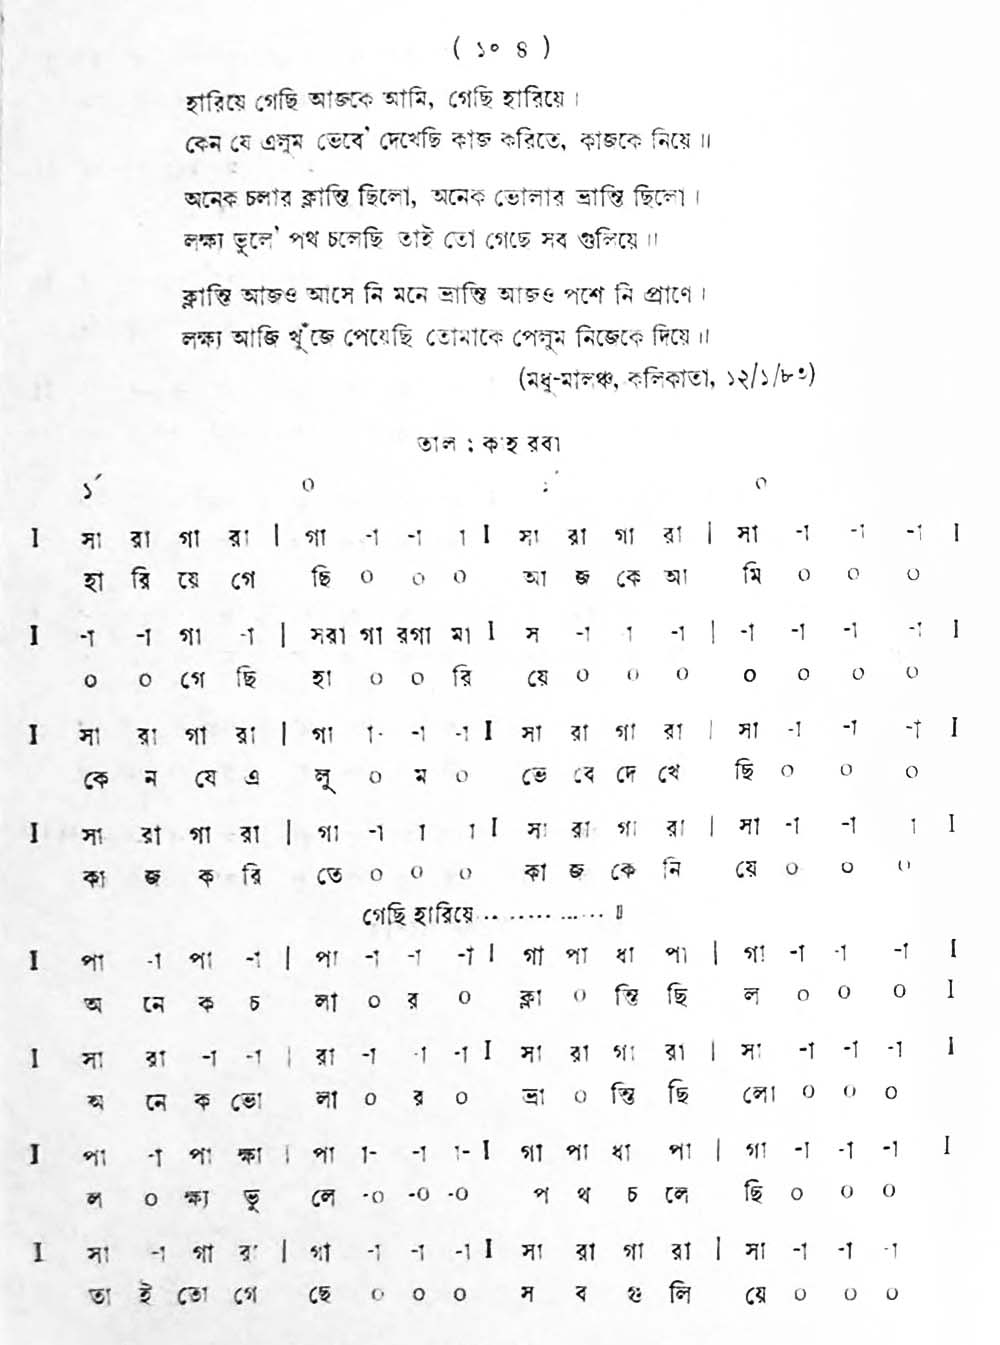 ( ১০৪ )
হারিয়ে গেছি আজকে আমি, গেছি হারিয়ে ।
কেন যে এলুম ভেবে' দেখেছি কাজ করিতে, কাজকে নিয়ে ॥
অনেক চলার ক্লান্তি ছিলো, অনেক ভোলার ভ্রান্তি ছিলো ।
লক্ষ্য ভুলে' পথ চলেছি তাই তো গেছে সব গুলিয়ে ॥
ক্লান্তি আজও আসে নি মনে ভ্রান্তি আজও পশে নি প্রাণে ।
লক্ষ্য আজি খুঁজে পেয়েছি তোমাকে পেলুম নিজেকে দিয়ে ॥
(মধু-মালঞ্চ, কলিকাতা, ১২/১/৮৩)
তাল : কাহরবা
১´ ০ ০
I সা রা গা রা | গা -া -া া I সা রা গা রা | সা -া -া -া I
হা রি য়ে গে ছি ০ ০ ০ আ জ কে আ মি ০ ০ ০
I -া -া গা -া | সরা গা রগা মা I স -া া -া | -া -া -া -া I
০ ০ গে ছি হা ০ ০ রি য়ে ০ ০ ০ ০ ০ ০ ০
I সা রা গা রা | গা া- -া -া I সা রা গা রা | সা -া -া -া I
কে ন যে এ লু ০ ম ০ ভে বে দে খে ছি ০ ০ ০
I সা রা গা রা | গা -া া া I সা রা গা রা | সা -া -া া I
কা জ ক রি তে ০ ০ ০ কা জ কে নি য়ে ০ ০ ০
গেছি হারিয়ে.............. ॥
I পা -া পা -া | পা -া -া -া I গা পা ধা পা | গা -া -া -া I
অ নে ক চ লা ০ র ০ ক্লা ০ ন্তি ছি ল ০ ০ ০ I
I সা রা -া -া | রা -া -া -া I সা রা গা রা | সা -া -া -া I
অ নে ক ভো লা ০ র ০ ভ্রা ০ ন্তি ছি লো ০ ০ ০
I পা -া পা ক্ষা | পা া- -া া- I গা পা ধা পা | গা -া -া -া I
ল ০ ক্ষ্য ভু লে -০ -০ -০ প থ চ লে ছি ০ ০ ০
I সা -া গা রা | গা -া -া -া I সা রা গা রা | সা -া -া -া
তা ই তো গে ছে ০ ০ ০ স ব গু লি য়ে ০ ০ ০